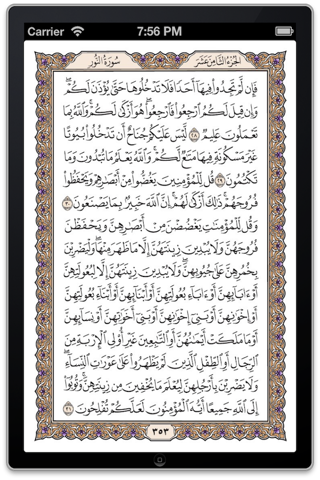 Carrier 7:56 PM
الجزء الثامن عشر سورة النور
فَإِن لَّمْ تَجِدُوا۟ فِيهَآ أَحَدًا فَلَا تَدْخُلُوهَا حَتَّىٰ يُؤْذَنَ لَكُمْ ۖ
وَإِن قِيلَ لَكُمُ ٱرْجِعُوا۟ فَٱرْجِعُوا۟ ۖ هُوَ أَزْكَىٰ لَكُمْ ۚ وَٱللَّهُ بِمَا
تَعْمَلُونَ عَلِيمٌ ٢٨ لَّيْسَ عَلَيْكُمْ جُنَاحٌ أَن تَدْخُلُوا۟ بُيُوتًا
غَيْرَ مَسْكُونَةٍ فِيهَا مَتَٰعٌ لَّكُمْ ۚ وَٱللَّهُ يَعْلَمُ مَا تُبْدُونَ وَمَا
تَكْتُمُونَ ٢٩ قُل لِّلْمُؤْمِنِينَ يَغُضُّوا۟ مِنْ أَبْصَٰرِهِمْ وَيَحْفَظُوا۟
فُرُوجَهُمْ ۚ ذَٰلِكَ أَزْكَىٰ لَهُمْ ۗ إِنَّ ٱللَّهَ خَبِيرٌۢ بِمَا يَصْنَعُونَ ٣٠
وَقُل لِّلْمُؤْمِنَٰتِ يَغْضُضْنَ مِنْ أَبْصَٰرِهِنَّ وَيَحْفَظْنَ
فُرُوجَهُنَّ وَلَا يُبْدِينَ زِينَتَهُنَّ إِلَّا مَا ظَهَرَ مِنْهَا ۖ وَلْيَضْرِبْنَ
بِخُمُرِهِنَّ عَلَىٰ جُيُوبِهِنَّ ۖ وَلَا يُبْدِينَ زِينَتَهُنَّ إِلَّا لِبُعُولَتِهِنَّ
أَوْ ءَابَآئِهِنَّ أَوْ ءَابَآءِ بُعُولَتِهِنَّ أَوْ أَبْنَآئِهِنَّ أَوْ أَبْنَآءِ بُعُولَتِهِنَّ
أَوْ إِخْوَٰنِهِنَّ أَوْ بَنِىٓ إِخْوَٰنِهِنَّ أَوْ بَنِىٓ أَخَوَٰتِهِنَّ أَوْ نِسَآئِهِنَّ
أَوْ مَا مَلَكَتْ أَيْمَٰنُهُنَّ أَوِ ٱلتَّٰبِعِينَ غَيْرِ أُو۟لِى ٱلْإِرْبَةِ مِنَ
ٱلرِّجَالِ أَوِ ٱلطِّفْلِ ٱلَّذِينَ لَمْ يَظْهَرُوا۟ عَلَىٰ عَوْرَٰتِ ٱلنِّسَآءِ ۖ
وَلَا يَضْرِبْنَ بِأَرْجُلِهِنَّ لِيُعْلَمَ مَا يُخْفِينَ مِن زِينَتِهِنَّ ۚ وَتُوبُوٓا۟
إِلَى ٱللَّهِ جَمِيعًا أَيُّهَ ٱلْمُؤْمِنُونَ لَعَلَّكُمْ تُفْلِحُونَ ٣١
٣٥٣